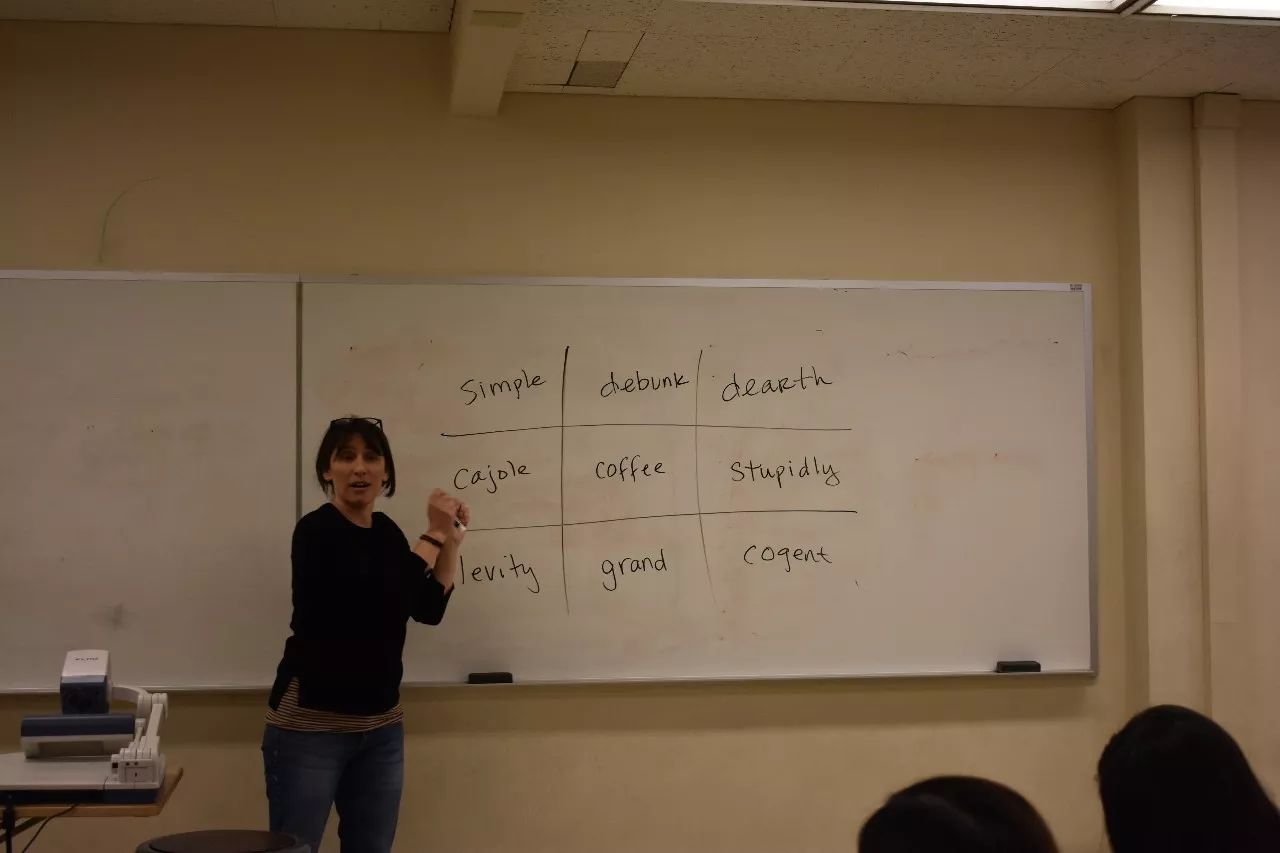 Simple debunk dearth
Cajole coffee Stupidly
levity grand cogent